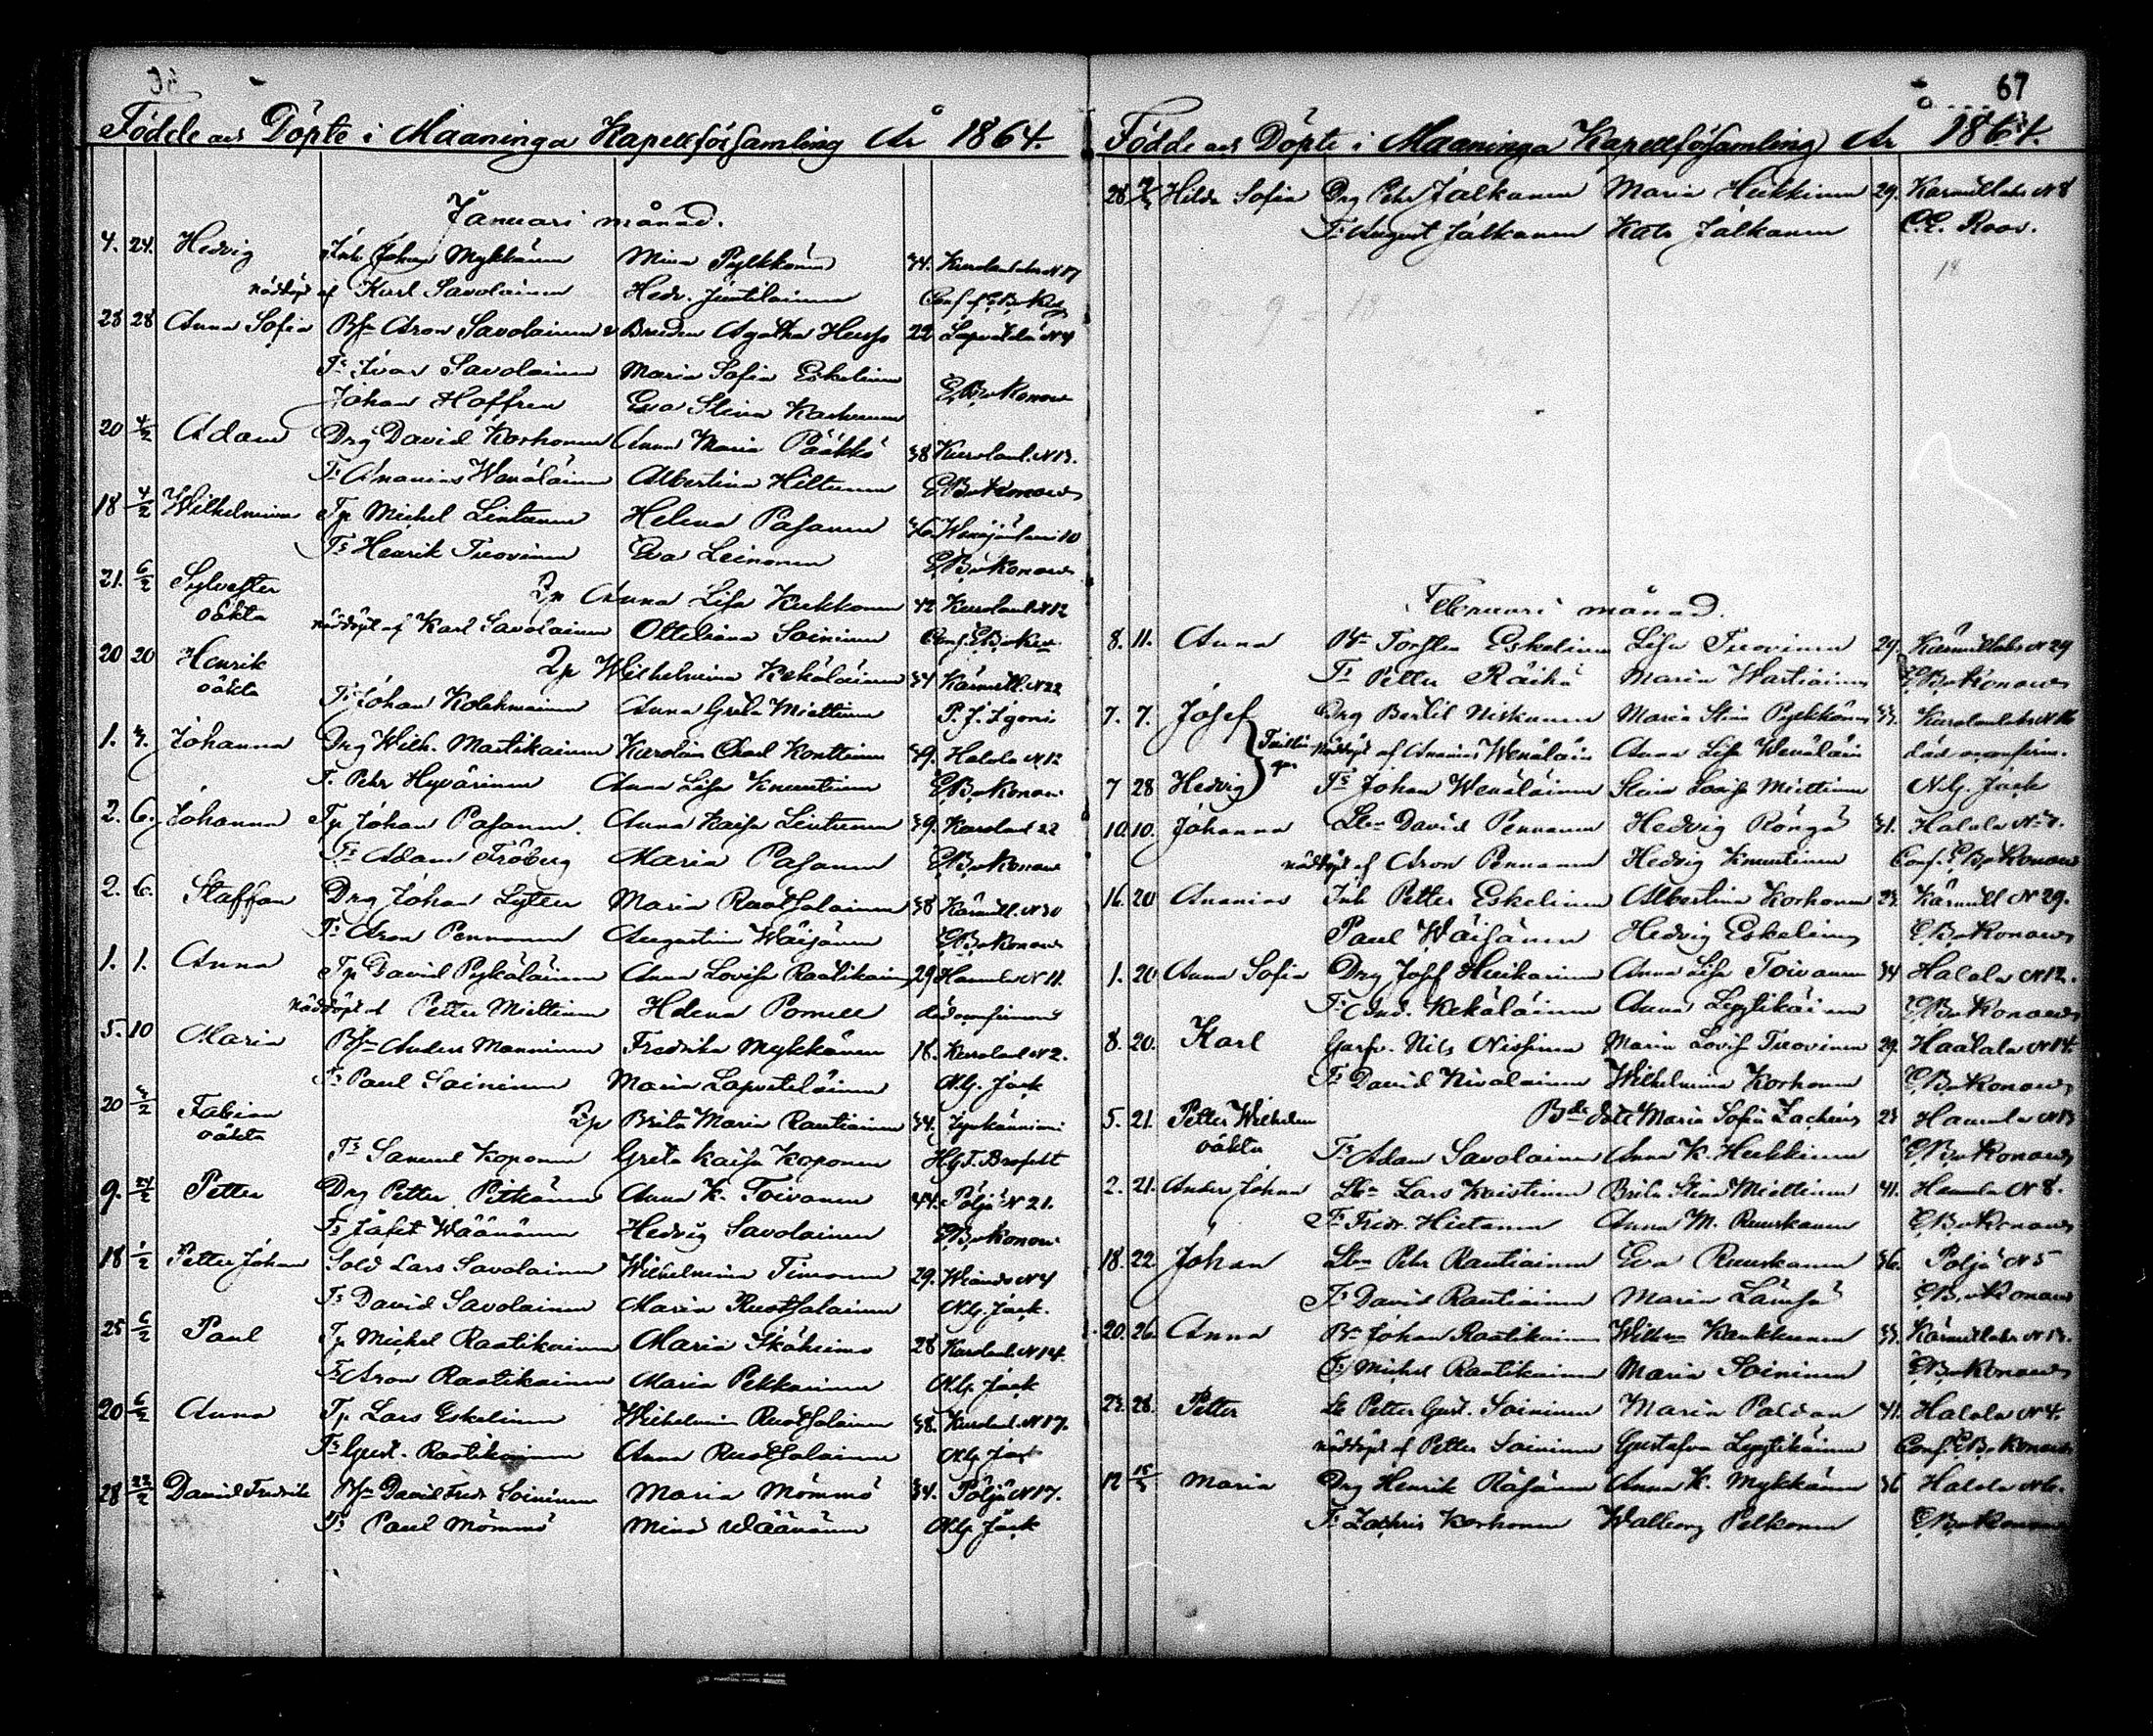 Födde och Döpte i Maaninga Kapellförsamling År 1864.
Januari månad.
4. 24. Hedvig Inh Johan Mykkänen Mina Pylkkönen 34. Kurolanlaks N 17
nöddöpt af Karl Savolainen Hedv. Juntilainen Conf. af E. B. v Konow
28 28 Anna Sofia Bsn Aron Savolainen & Bruden Agatha Husso 22 Lapvetelä N 4
Fr Ivar Savolainen Maria Sofia Eskelinen
Johan Hoffren Eva Stina Korhonen E. B. v Konow
20 4/2 Adam Drg David Korhonen Anna Maria Pääkkö 38 Kurolanl. N 13.
Fr Ananias Wenäläinen Albertina Hiltunen E B v Konow
18 4/2 Wilhelmina Tp Michel Lintunen Helena Pasanen 36. Wenäjänsaari 10
Fr Henrik Tuovinen Eva Leinonen E B v Konow
21. 6/2 Sylvester Qp Anna Lisa Kukkonen 42 Kurolanl. N 12
oäkta nöddöpt af Karl Savolainen Ottiliana Soininen Conf. E. B. v Konow
20 20 Henrik Qp Wilhelmina Kekäläinen 34 Kärmell. N 22
oäkta Fr Johan Kolehmainen Anna Greta Miettinen P. J. Igoni
1. 3. Johanna Drg Wilh. Martikainen Karolina Charl Konttinen 39. Halola N 12
F. Pehr Hyvärinen Anna Lisa Knuutinen E B v Konow
2. 6. Johanna Tp Johan Pasanen Anna Kaisa Lintunen 39. Kurolanl 22
Fr Adam Fröberg Maria Pasanen E B v Konow
2. 6. Staffan Drg Johan Lyten Maria Ruotsalainen 38 Kärmell. N 30
Fr Aron Pennanen Augustina Wäisänen E. B. v Konow
1. 1. Anna Tp David Pykäläinen Anna Lovisa Raatikainen 29 Hamula N 11.
nöddöpt af Petter Miettinen Helena Pomell död oconfirmerad
5. 10 Maria Bsn Anders Manninen Fredrika Mykkänen 18. Kurolanl N 2.
Fr Paul Soininen Maria Lapveteläinen N. G. Jack
20 3/2 Fabian Qp Brita Maria Rautiainen 34.
oäkta Fr Samuel Koponen Greta Kaisa Koponen H. G. T. Brofeldt
9. 24/2 Petter Drg Petter Pitkänen Anna K. Toivanen 44. Pöljä N 21.
Fr Jafet Wäänänen Hedvig Savolainen E B v Konow
18 1/2 Petter Johan Sold Lars Savolainen Wilhelmina Timonen 29. Wiando N 4
Fr David Savolainen Maria Ruotsalainen N. G. Jack.
25 6/2 Paul Tp Michel Raatikainen Maria Ikäheimo 28 Kurolanl N 14.
Fr Aron Raatikainen Maria Pekkarinen N. G. Jack
20 6/2 Anna Tp Lars Eskelinen Wilhelmina Ruotsalainen 38. Kurolanl. N 17.
Fr Gust. Raatikainen Anna Ruotsalainen N. G. Jack
28 22/2 David Fredrik Bsn David Fredr Soininen Maria Mömmö 34. Pöljä N 17.
Fr Paul Mömmö Mina Wäänänen N. G. Jack
67
Födde och Döpte i Maaninga Kapellförsamling År 1864.
28 Hilda Sofia Drg Pehr Jalkanen Maria Heikkinen 29. Kärmellaks N 8
Fr August Jalkanen Kata Jalkanen C. E. Roos.
Februari månad.
8. 11. Anna Bsn Torsten Eskelinen Lisa Tuovinen 29. Kärmellaks N 29
Fr Petter Räihä Maria Wartiainen E. B. v Konow
7. 7. Josef Drg Bertil Niskanen Maria Stina Pylkkönen 33. Kurolanlaks N 16
Tvillingar nöddöpt af Ananias Wenäläin Anna Lisa Wenäläin död oconfirm.
7 28 Hedvig Fr Johan Wenäläinen Stina Lovisa Miettinen N. G. Jack
10. 10. Johanna Lbn David Pennanen Hedvig Röngä 31. Halola No 7.
nöddöpt af Aron Pennanen Hedvig Knuutinen Conf. E B v Konow
16. 20 Ananias Inh Petter Eskelinen Albertina Korhonen 23. Kärmell N 29.
Paul Wäisänen Hedvig Eskelinen E. B. v Konow
1. 20 Anna Sofia Drg Josef Huikarinen Anna Lisa Toivanen 34 Halola N 12.
Fr And. Kekäläinen Anna Lyytikäinen E. B. v Konow
8. 20. Karl Garfv. Nils Nissinen Maria Lovisa Tuovinen 29. Haatala N 14.
Fr David Nivalainen Wilhelmina Korhonen E. B. v Konow
5. 21. Petter Wilhelm Bde dotr Maria Sofia Zacheus 23 Hamula N 13
oäkta Fr Adam Savolainen Anna K. Heikkinen E. B. v Konow
2. 21. Anders Johan Lbn Lars Kaistinen Brita Stina Miettinen 41. Hamula N 8.
Fr Fredr. Hietanen Anna M. Ruuskanen E. B. v Konow
18. 22 Johan Lbn Pehr Rautiainen Eva Ruuskanen 36. Pöljä N 5
Fr David Rautiainen Maria Lämsä E. B. v Konow
20. 26. Anna Bn Johan Raatikainen Wilhna Kaukkunen 33. Kärmellaks N 13.
Fr Michel Raatikainen Maria Soininen E. B. v Konow
23. 28. Petter Lb Petter Gust. Soininen Maria Paldan 41. Halola N 4.
nöddöpt af Petter Soininen Gustafva Lyytikäinen Conf. E B v Konow
12 Maria Drg Henrik Räsänen Anna K. Mykkänen 36 Halola N 6.
Fr Zachris Korhonen Walborg Pelkonen E B v Konow